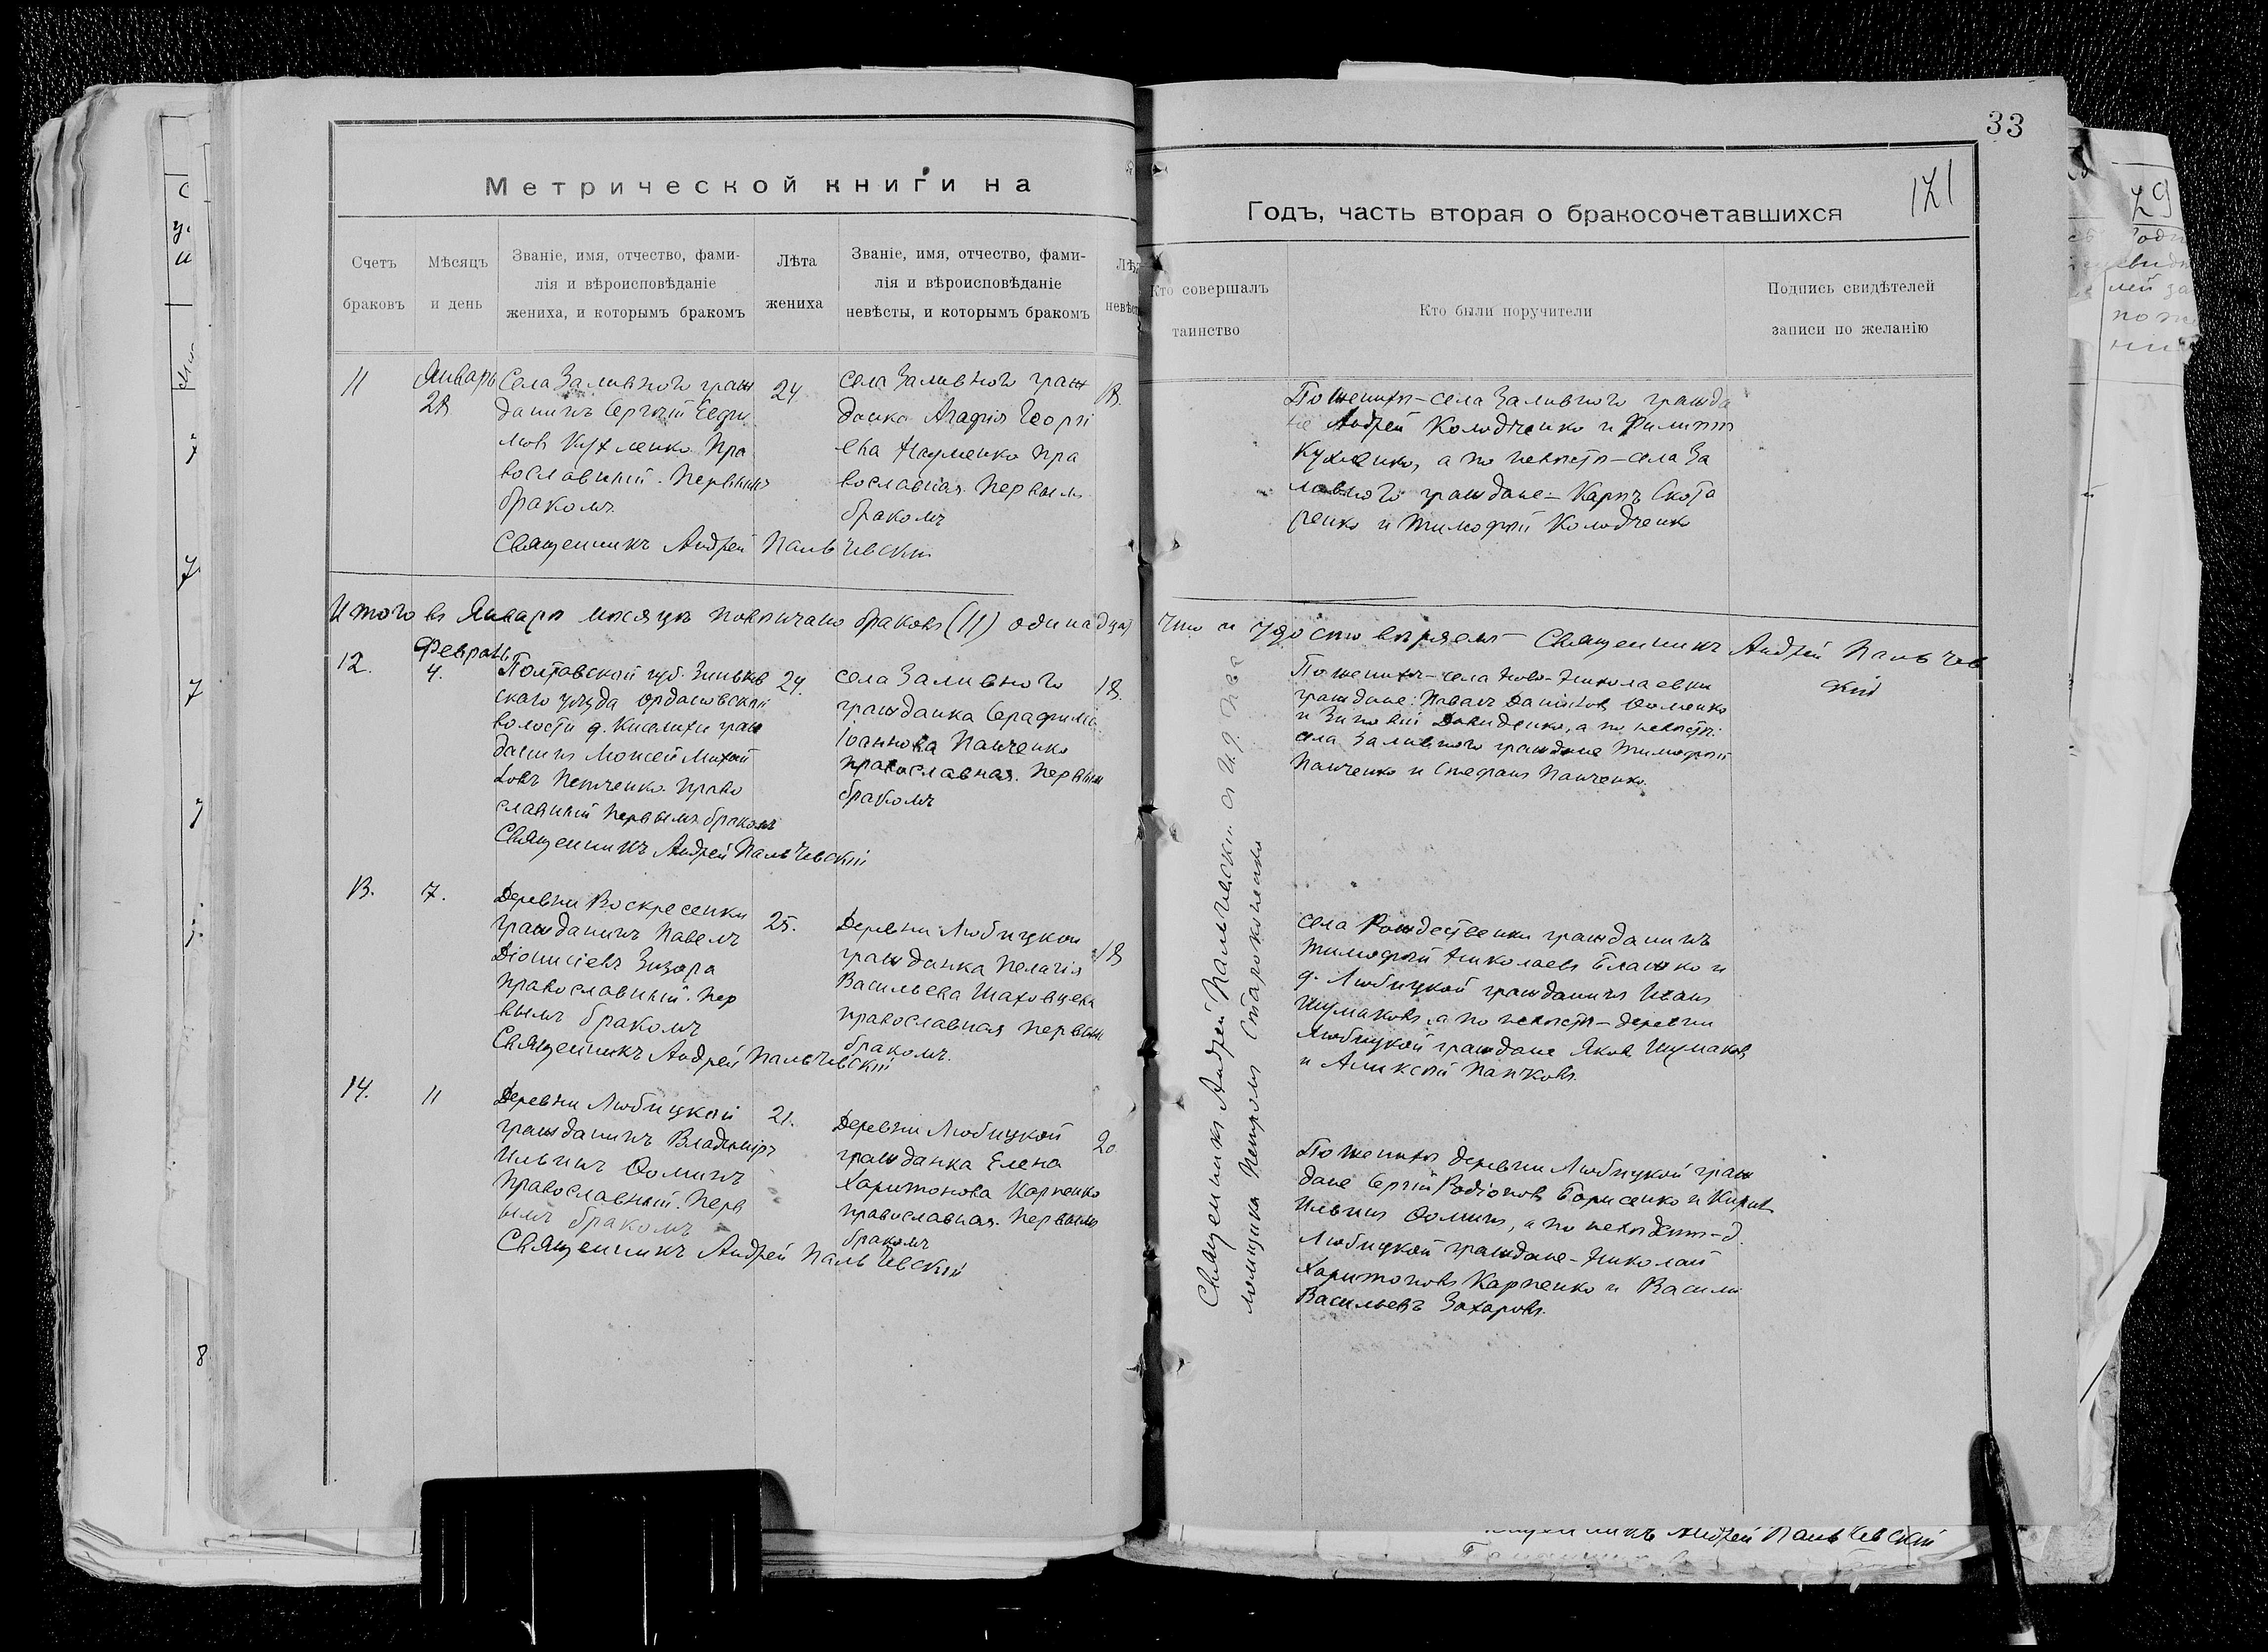 33
Метрической книги на
Годъ, часть вторая о бракосочетавшихся
121
Счетъ браковъ
Мѣсяцъ и день
Званіе, имя, отчество, фами-
лія и вѣроисповѣданіе
жениха, и которымъ бракомъ
Лѣта жениха
Званіе, имя, отчество, фами-
лія и вѣроисповѣданіе
невѣсты, и которымъ бракомъ
Кто совершалъ
таинство
Кто были поручители
Подпись свидѣтелей
записи по желанію
11
Январь
28
Села Заливного граж
данинъ Сергѣй
Кухленко Пра
вославный. Первымъ
бракомъ.
Священникъ Андрей Пальчевскій
24.
села Заливного граж
данка Агафія Георгі
ева Науменко Пра
вославная. Первымъ
бракомъ
18.
По женихѣ – села Заливного гражда
не Андрей Колодченко и Филиппъ
Кухленко, а по невѣстѣ – села За
ливного граждане – Карпъ Ската
ренко и Тимофѣй Колодченко
Итого въ Январѣ мѣсяцѣ повѣнчано браковъ (11) одинадцать
Что и удостовѣряемъ – Священникъ Андрей Пальчев
скій
12.
Февраль
4.
Полтавской губ. Зиньков
скаго уѣзда
волости д. граж
данинъ Моисей Михай
ловъ Петченко. Право
славный Первымъ бракомъ
Священникъ Андрей Пальчевскій
24.
села Заливного
гражданка Серафима
Іоаннова Панченко
православная. Первым
бракомъ
18.
По женихѣ – села Ново-Николаевки
граждане: Даниловъ Ѳоменко
и Зиновій Давиденко, а по невѣстѣ:
села Заливного граждане Тимофѣй
Панченко и Стефанъ Панченко.
13.
7.
Деревни Воскресенки
гражданинъ Павелъ
Діонисіевъ Зизора
православный. Пер
вымъ бракомъ
Священникъ Андрей Пальчевскій
25.
Деревни Любицкой
гражданка Пелагія
Васильева Шаховцева
православная первым
бракомъ.
18
села Рождественки гражданинъ
Тимофѣй Николаевъ Блашко и
д. Любицкой гражданинъ Иванъ
Шумаковъ, а по невѣстѣ – деревни
Любицкой граждане Яковъ Шумаковъ
и Алексѣй Папковъ.
14.
11
Деревни Любицкой
гражданинъ Владиміръ
Ильинъ Ѳоминъ
Православный. Перв
ымъ бракомъ
Священникъ Андрей Пальчевскій
21.
Деревни Любицкой
гражданка Елена
Харитонова Карпенко
православная. Первымъ
бракомъ
20
По женихѣ деревни Любицкой граж
дане Сергѣй Родіоновъ Борисенко и
Ильинъ Ѳоминъ, а по невѣстѣ – д.
Любицкой граждане – Николай
Харитоновъ Карпенко и Василій
Васильевъ Захаровъ.
Священникъ Андрей Пальчевскій
ломщика Петромъ Староконенко
Андрей Пальчевскій